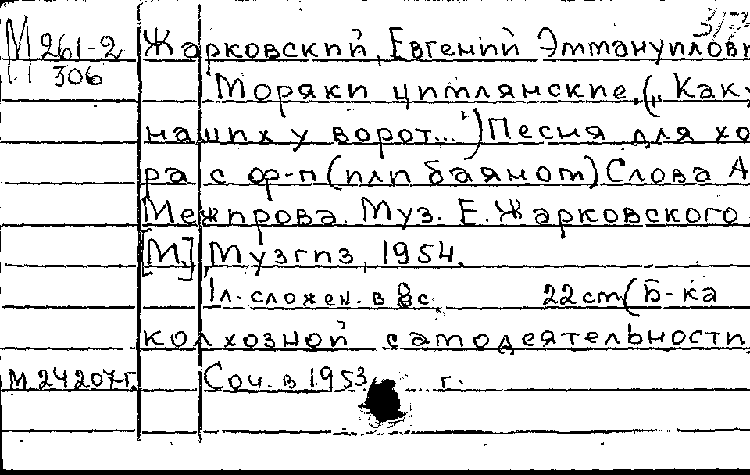 317
М 261-2 Жарковский, Евгений Эммануилови
306 Моряки цимлянские. („Как у
наших у ворот...") Песня для хо-
ра с ф-п (или баяном) Слова А.
Межирова. Муз. Е. Жарковского.
[М.] Музгиз, 1954.
1л. сложен. в 8с. 22 cm (Б-ка
колхозной самодеятельности
М 24207-г. Соч. в 1953 г.